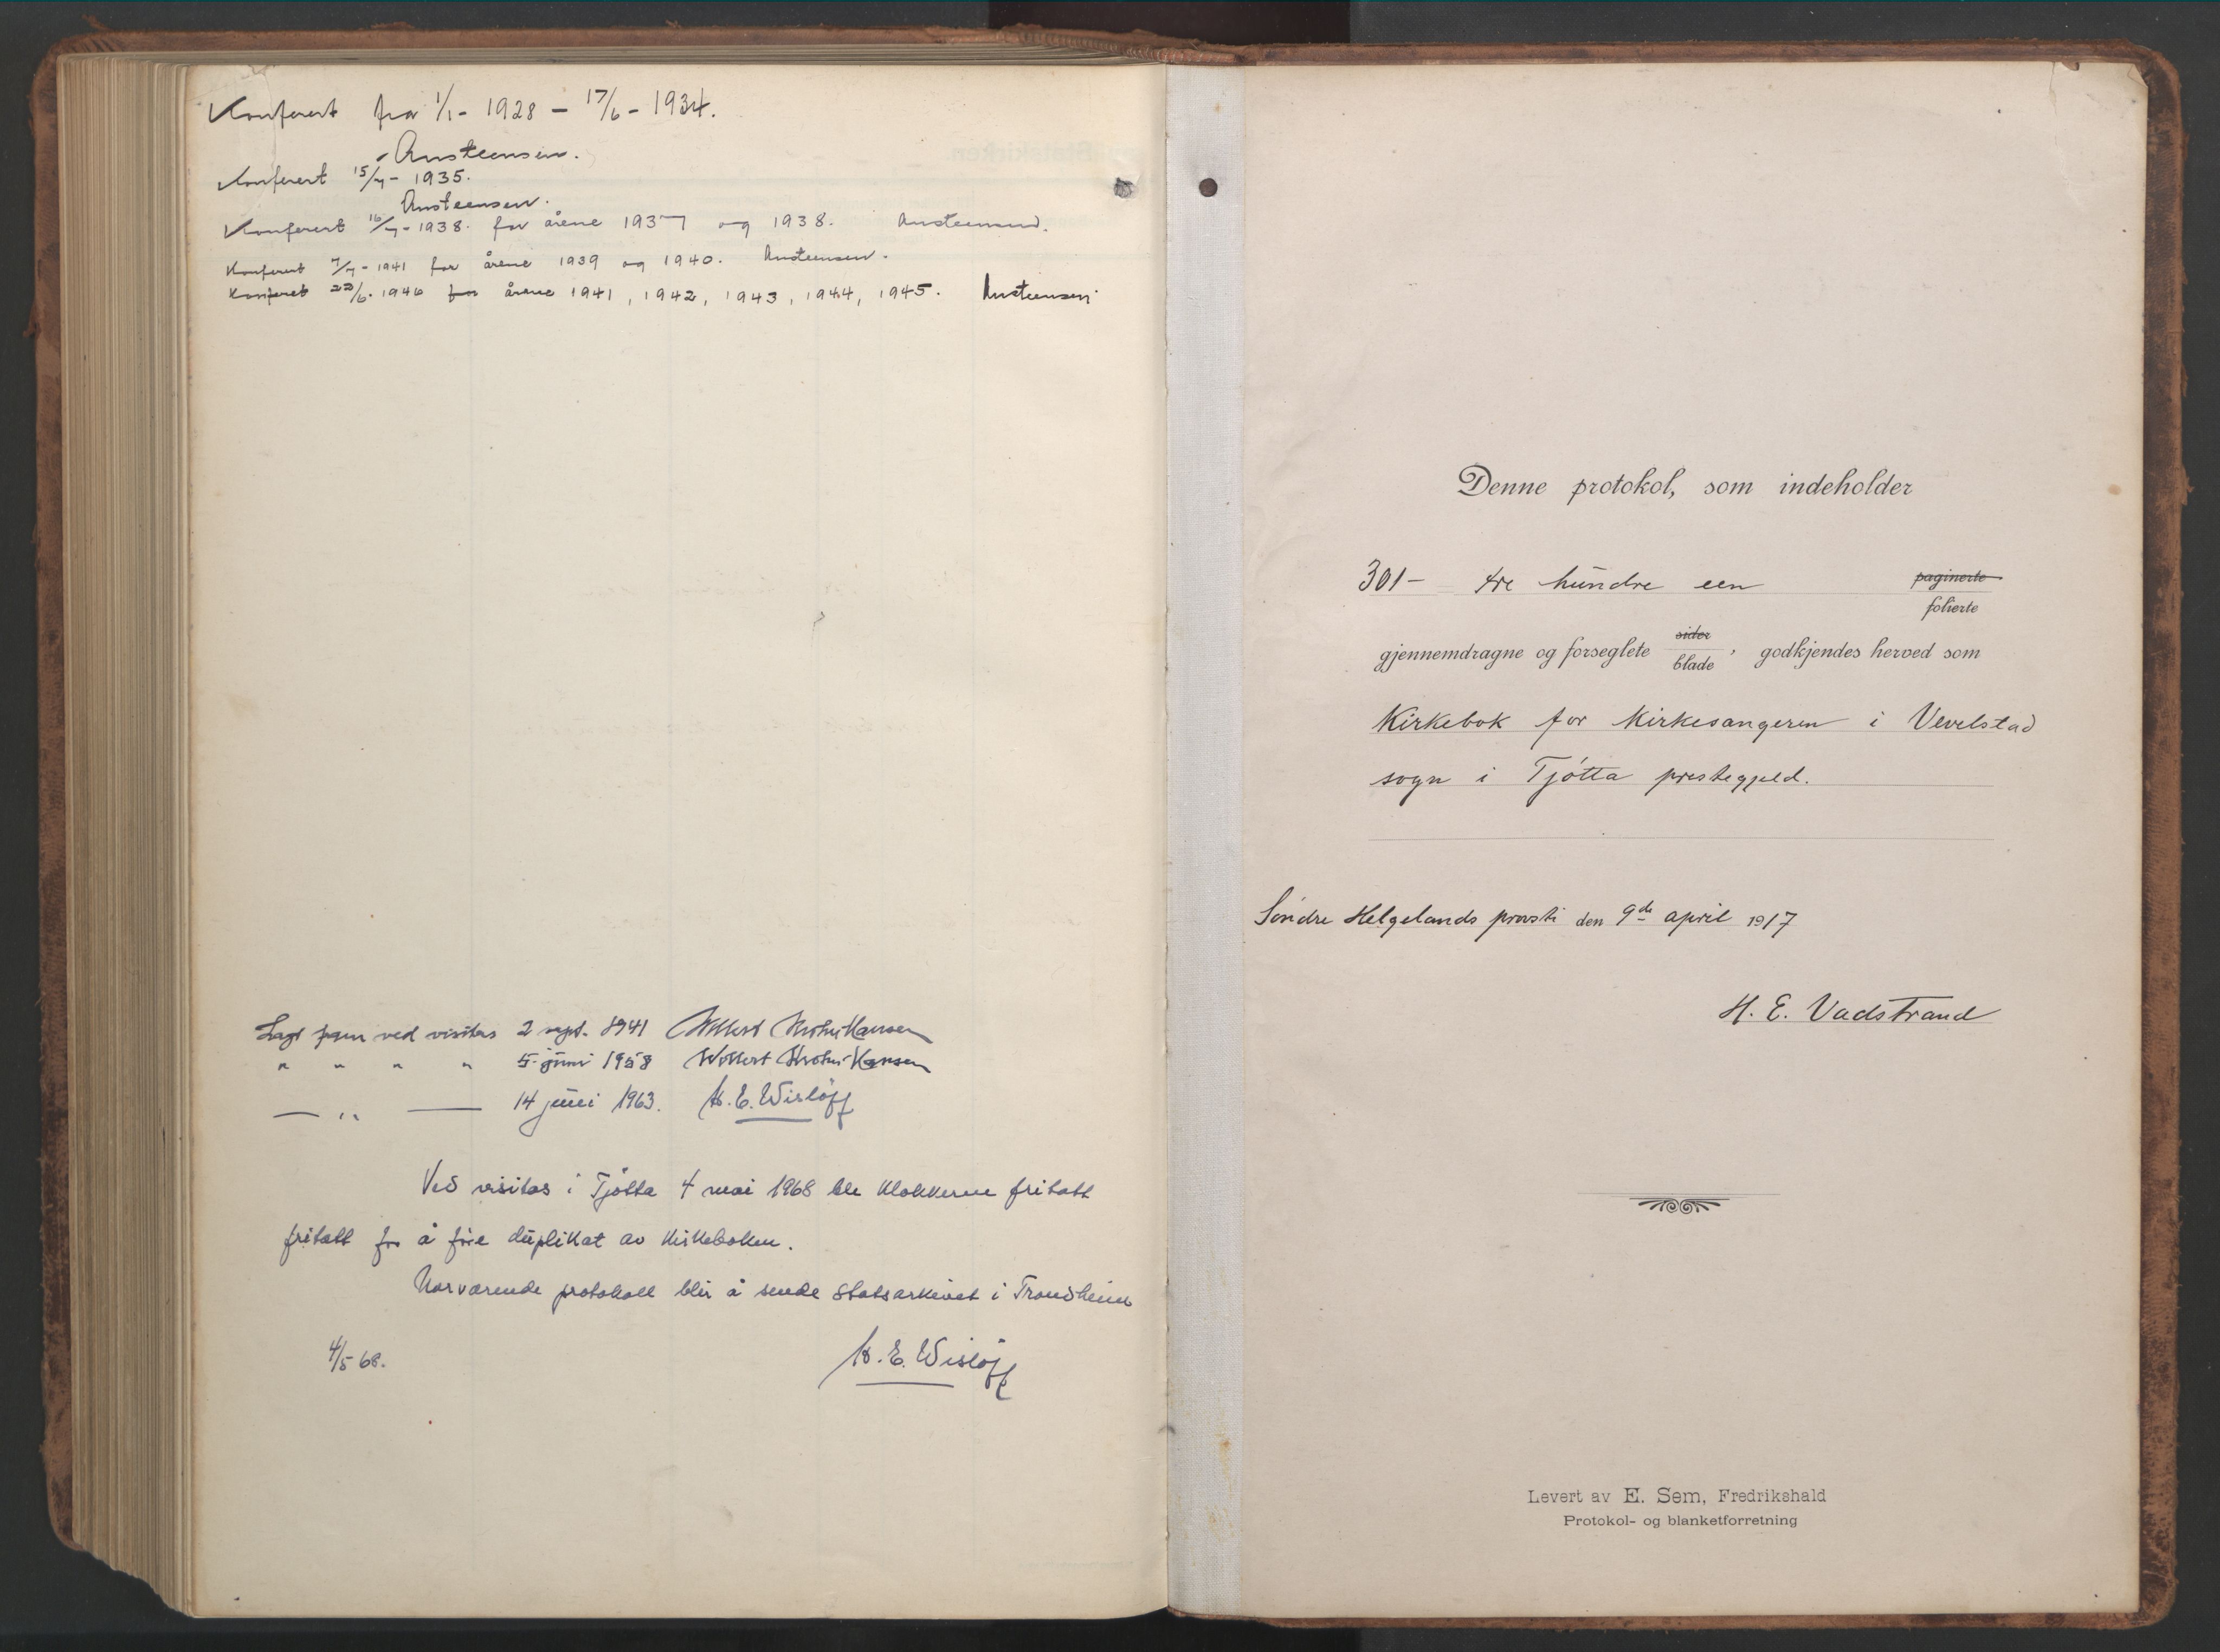 Konferert fra 1/1- 1928 - 17/6 - 1934.
Austeensen.
Konferert 15/7- 1935.
Austeensen.
Konferert 16/7- 1938. for årene 1937 og 1938. Austeensen.
Konferert 7/7- 1941 for årene 1939 og 1940. Austeensen.
Konferet 22/6. 1946 for årene 1941, 1942, 1943, 1944, 1945. Austeensen
Lagt fram ved visitas 2 sept. 1941 Wollert Krohn Hansen
" " " " 5. juni 1958 Wollert Krohn Hansen
— " — 14 juni 1963. K. E. Wisløff
Ved visitas i Tjøtta 4 mai 1968 ble klokkerne fritatt
fritatt for å føre duplikat av kirkeboken.
Nærværende protokoll blir å sende Statsarkivet i Trondheim
4/5 68.
K. E. Wisløff
Denne protokol, som indeholder
301- tre hundre een paginerte
folierte
gjennemdragne og forseglete sider blade, godkjendes herved som
Kirkebok for Kirkesangeren i Vevelstad
sogn i Tjøtta prestegjeld.
Søndre Helgelands prosti den 9de april 1917
H. E. Vadstrand
Levert av E. Sem, Fredrikshald
Protokol- og blanketforretning